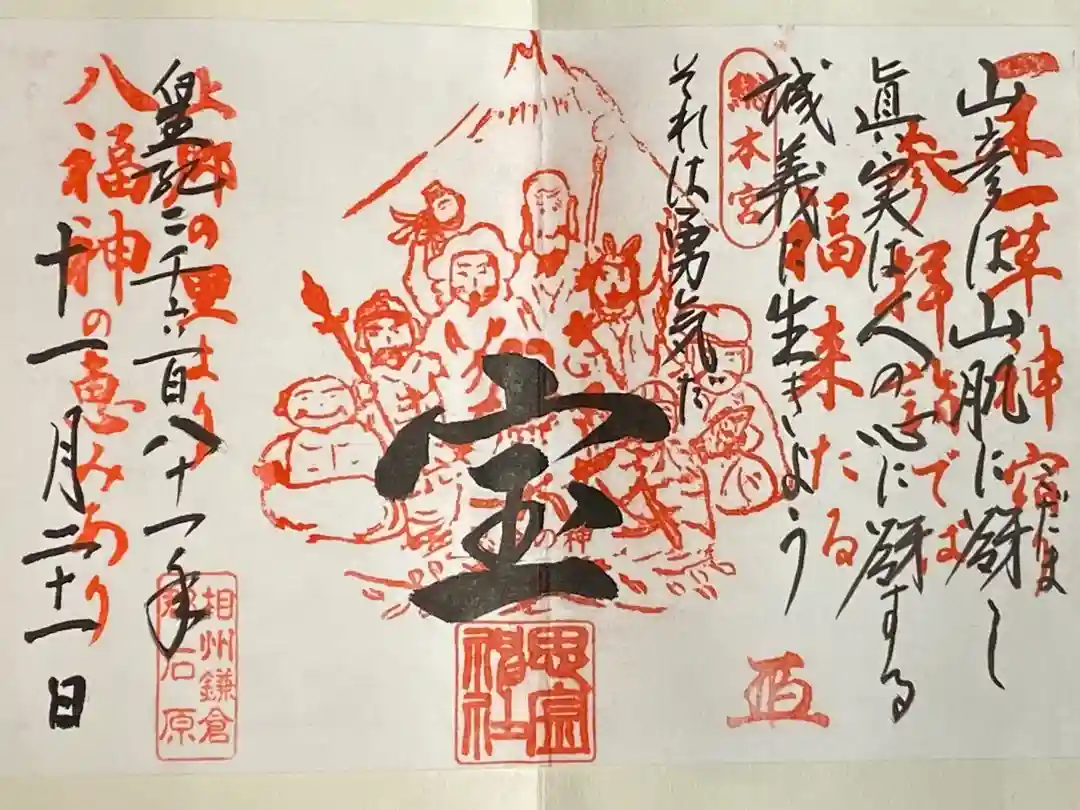 一木一草神宿
山彦は山肌に谺し
こだま
参拝
でば
眞実は人の心に谺する
福来たる
誠義に生きよう
総本宮
それは勇気だ
宝
の神
思金神社
上郷の里は
皇紀二千六百八十一年
八福神の恵みあり
十一月二十一日
相州鎌倉
石原